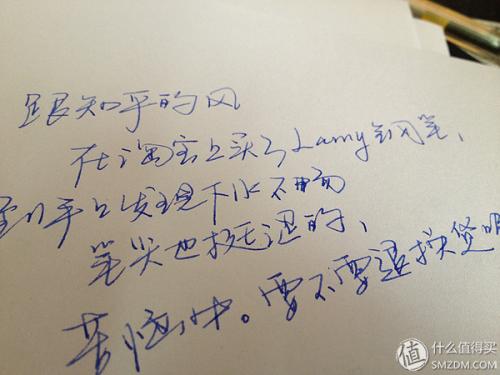 跟知乎的风
在淘宝上买了Lamy钢笔、
到手上发现下水不畅
笔尖也挺迅的、
苦恼中。要不要退换货呢
值 什么值得买
SMZDM.COM